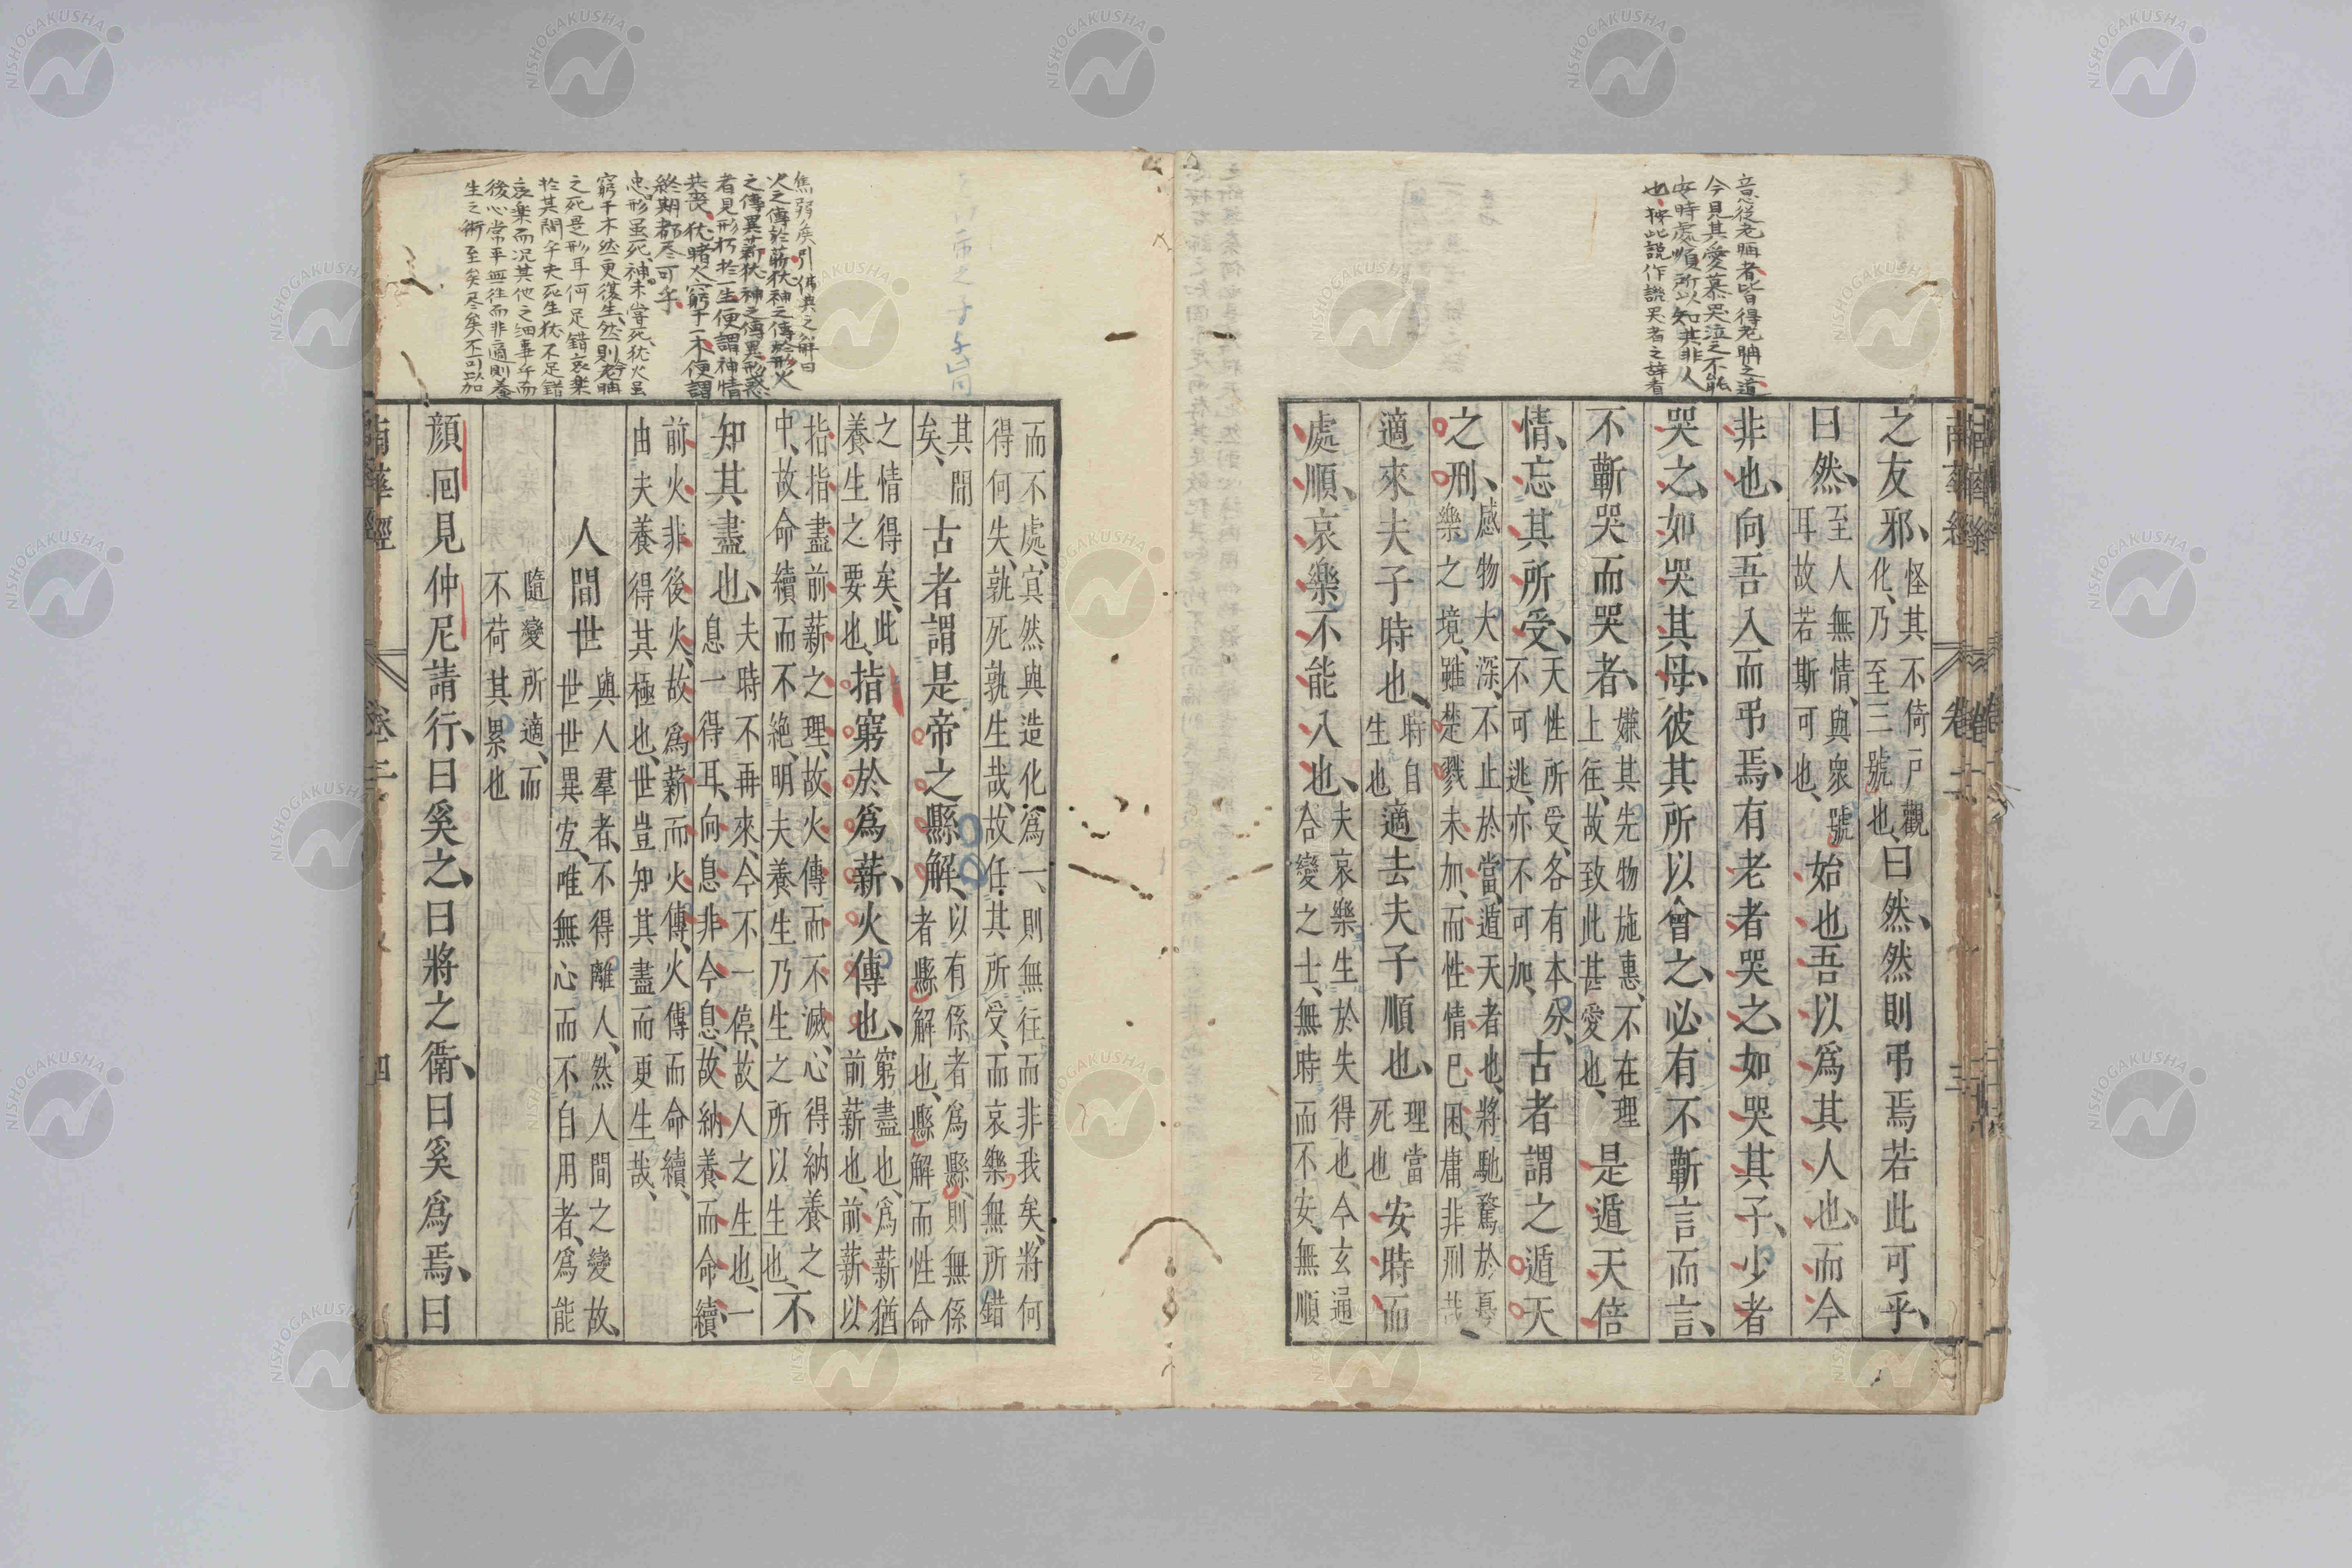 意從老聃者皆得老聃之道
今見其愛慕哭泣之不能
安時處順所以知其非人
也按此説作譏哭者之辞看
之友邪、怪其不倚戸觀
化、乃至三號也、曰然、然則弔焉若此可乎、
曰然、至人無情、與衆號
耳故若斯可也、始也吾以爲其人也、而今
非也、向吾入而弔焉、有老者哭之、如哭其子、少者
哭之、如哭其母、彼其所以會之、必有不蘄言而言、
不蘄哭而哭者、嫌其先物施惠、不在理
上往、故致此甚愛也、是遁天倍
情、忘其所受、天性所受、各有本分、
不可逃、亦不可加、古者謂之遁天
之刑、感物大深、不止於當、遁天者也、將馳騖於憂
樂之境、雖楚戮未加、而性情已困、庸非刑哉
適來夫子時也、時自
生也適去夫子順也、理當
死也安時而
處順、哀樂不能入也、夫哀樂生於失得也、今玄通
合變之士、無時而不安、無順
南華經 卷二 三
焦弱矦引佛典之解曰
火之傳於薪猶神之傳於形火
之傳異薪猶神之傳異形惑
者見形朽於一生便謂神情
共喪猶睹火窮于一木便謂
終期都尽可乎
忠形虽死神未嘗死犹火虽
窮于木然更復生然則老聃
之死是形耳何足錯哀樂
於其間乎夫死生犹不足錯
哀樂而况其他之細事乎而
後心常平無往而非適則養
生之術至矣尽矣不可以加
而不處、冥然與造化爲一、則無往而非我矣、將何
得何失、孰死孰生哉、故任其所受、而哀樂無所錯
其間
矣、古者謂是帝之縣解、以有係者爲縣、則無係
者縣解也、縣解而性命
之情得矣、此
養生之要也、指窮於爲薪、火傳也、窮盡也、爲薪猶
前薪也、前薪以
指指盡前薪之理、故火傳而不滅、心得納養之
中、故命續而不絶、明夫養生乃生之所以生也、不
知其盡也、夫時不再來、今不一停、故人之生也、一
息一得耳、向息非今息、故納養而命續、
前火非後火、故爲薪而火傳、火傳而命續、
由夫養得其極也、世豈知其盡而更生哉、
人間世 與人羣者、不得離人、然人間之變故、
世世異宜、唯無心而不自用者、爲能
隨變所適、而
不荷其累也
顔回見仲尼請行、曰奚之、曰將之衛、曰奚爲焉、曰
南華經 卷二 四